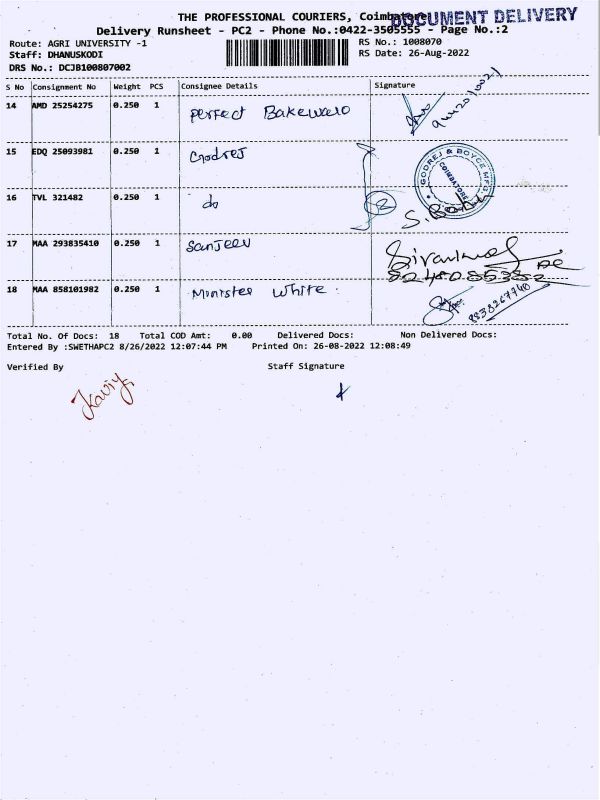 THE PROFESSIONAL COURIERS, Coimbatore
DOCUMENT DELIVERY
Delivery Runsheet - PC2 - Phone No.:0422-3505555 - Page No.:2
Route: AGRI UNIVERSITY -1 RS No.: 1008070
Staff: DHANUSKODI RS Date: 26-Aug-2022
DRS No.: DCJB100807002
S No Consignment No Weight PCS Consignee Details Signature
14 AMD 25254275 0.250 1 Perfect Bakeware
15 EDQ 25093981 0.250 1 Godrej
GODREJ & BOYCE MFG.
COIMBATORE
16 TVL 321482 0.250 1 do S. Babu
17 MAA 293835410 0.250 1 Sanjeev
18 MAA 858101982 0.250 1 Minister White. 8838267740
Total No. Of Docs: 18 Total COD Amt: 0.00 Delivered Docs: Non Delivered Docs:
Entered By :SWETHAPC2 8/26/2022 12:07:44 PM Printed On: 26-08-2022 12:08:49
Verified By Staff Signature